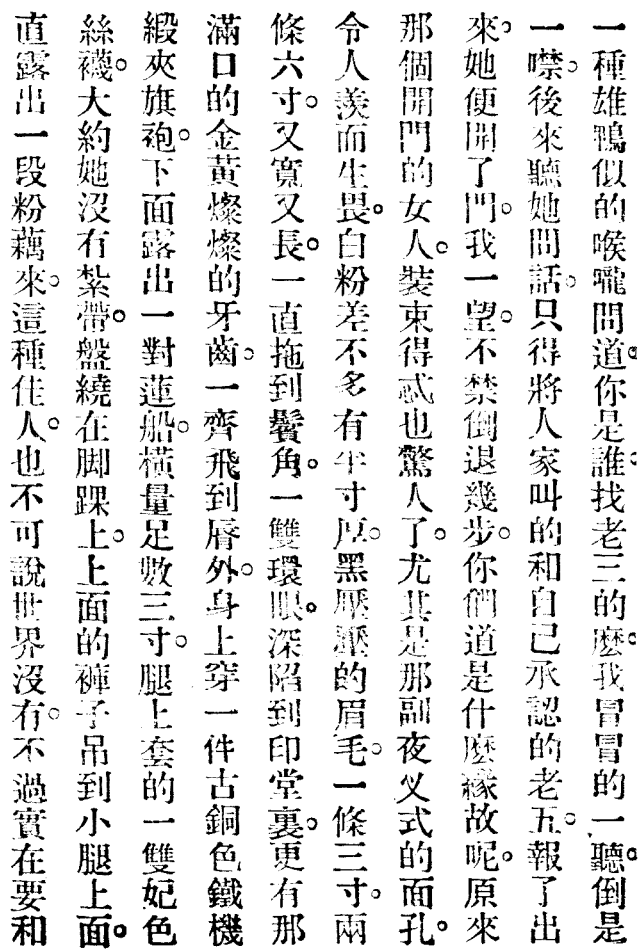 一種雄鴨似的喉嚨問道。你是誰。找老三的麽。我冒冒的一聽。倒是
一噤。後來聽她問話。只得將人家叫的和自己承認的老五。報了出
來。她便開了門。我一望。不禁倒退幾步。你們道是什麽緣故呢。原來
那個開門的女人。裝束得忒也驚人了。尤其是那副夜叉式的面孔。
令人羨而生畏。白粉差不多有半寸厚。黑壓壓的眉毛。一條三寸。兩
條六寸。又寬又長。一直拖到鬢角。一雙環眼。深陷到印堂裏。更有那
滿口的金黃燦燦的牙齒。一齊飛到唇外。身上穿一件古銅色鐵機
緞夾旗袍。下面露出一對蓮船。橫量足數三寸。腿上套的一雙妃色
絲襪。大約她沒有紮帶。盤繞在脚踝上。上面的褲子吊到小腿上面。
直露出一段粉藕來。這種佳人。也不可說世界沒有。不過實在要和